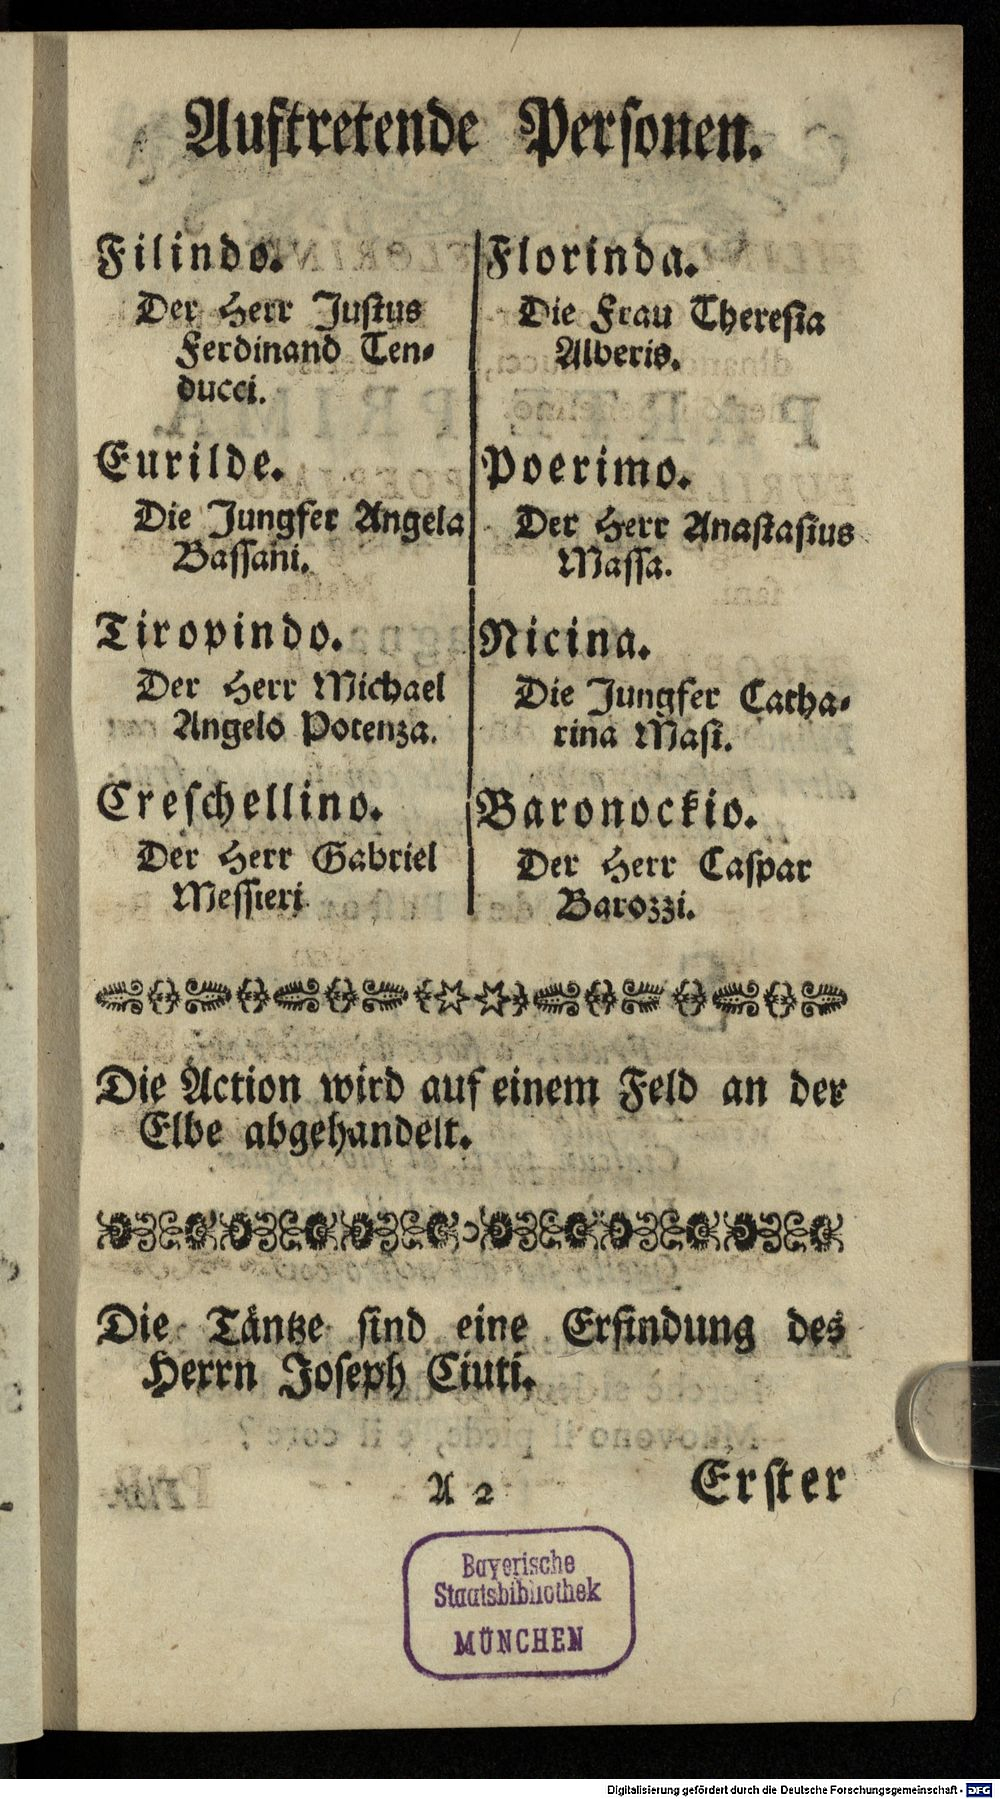 Auftretende Personen.
Filindo.
Der Herr Justus
Ferdinand Ten-
ducci.
Eurilde.
Die Jungfer Angela
Bassani.
Tiropindo.
Der Herr Michael
Angelo Potenza.
Creschellino.
Der Herr Gabriel
Messieri
Florinda.
Die Frau Theresia
Alberis.
Poerimo.
Der Herr Anastasius
Massa.
Nicina.
Die Jungfer Catha-
rina Masi.
Baronockio.
Der Herr Caspar
Barozzi.
Die Action wird auf einem Feld an der
Elbe abgehandelt.
Die Täntze sind eine Erfindung des
Herrn Joseph Ciuti.
A 2
Erster
Bayerische
Staatsbibliothek
MÜNCHEN
Digitalisierung gefördert durch die Deutsche Forschungsgemeinschaft - DFG